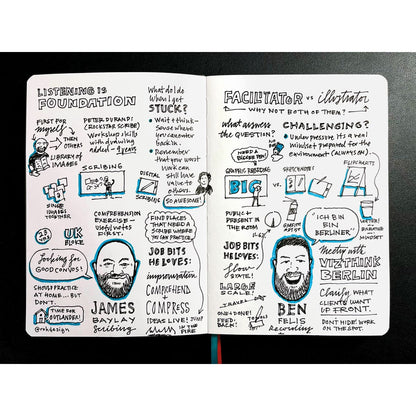 LISTENING IS
FOUNDATION
FIRST FOR
myself
THEN
OTHERS
LIBRARY OF
IMAGES
PETER DURAND!
(ROCKSTAR SCRIBE)
WORKSHOP SKILLS
with drawing
added - 9 years
SCRIBING
DIGITAL
SCRIBING
USING
IMAGES
TOGETHER
UK
BLOKE
looking for
GOOD CONVOS!
SHOULD PRACTICE
AT HOME... BUT
DON'T.
TIME FOR
OUTLANDER!
@rohdesign
COMPREHENSION
EXERCISE -
Useful notes
BEST.
JAMES
BAYLAY
Scribing
What do I do
When I get
STUCK?
Wait + think -
sense where
you can enter
back in.
Remember
that my worst
work can
still have
value to
others.
SO AWESOME!
FIND PLACES
THAT NEED A
SCRIBE WHERE
YOU CAN PRACTICE.
JOB BITS
HE LOVES:
improvisation
COMPREHEND
+
COMPRESS
IDEAS LIVE!
IN THE
FIRE
FACILITATOR vs illustrator
WHY NOT BOTH OF THEM?
what answers
THE QUESTION?
NEED A
BIGGER PEN!
CHALLENGING?
Under pressure it's a real
mindset prepared for the
environment (ALWAYS ON).
GRAPHIC RECORDING
BIG
SKETCHNOTES
FLIPCHARTS
PUBLIC +
PRESENT IN
THE ROOM
"ICH BIN
EIN
BERLINER"
MINDSET
JOB BITS
HE LOVES:
flow
STATE!
LARGE
SCALE!
TRAVEL
ONE + DONE!
FEED-
BACK!
BEN
FELIS
Recording
Meetup with
VIZTHINK
BERLIN
Clarify WHAT
CLIENTS WANT
UP FRONT.
DON'T HIDE WORK
ON THE SPOT.